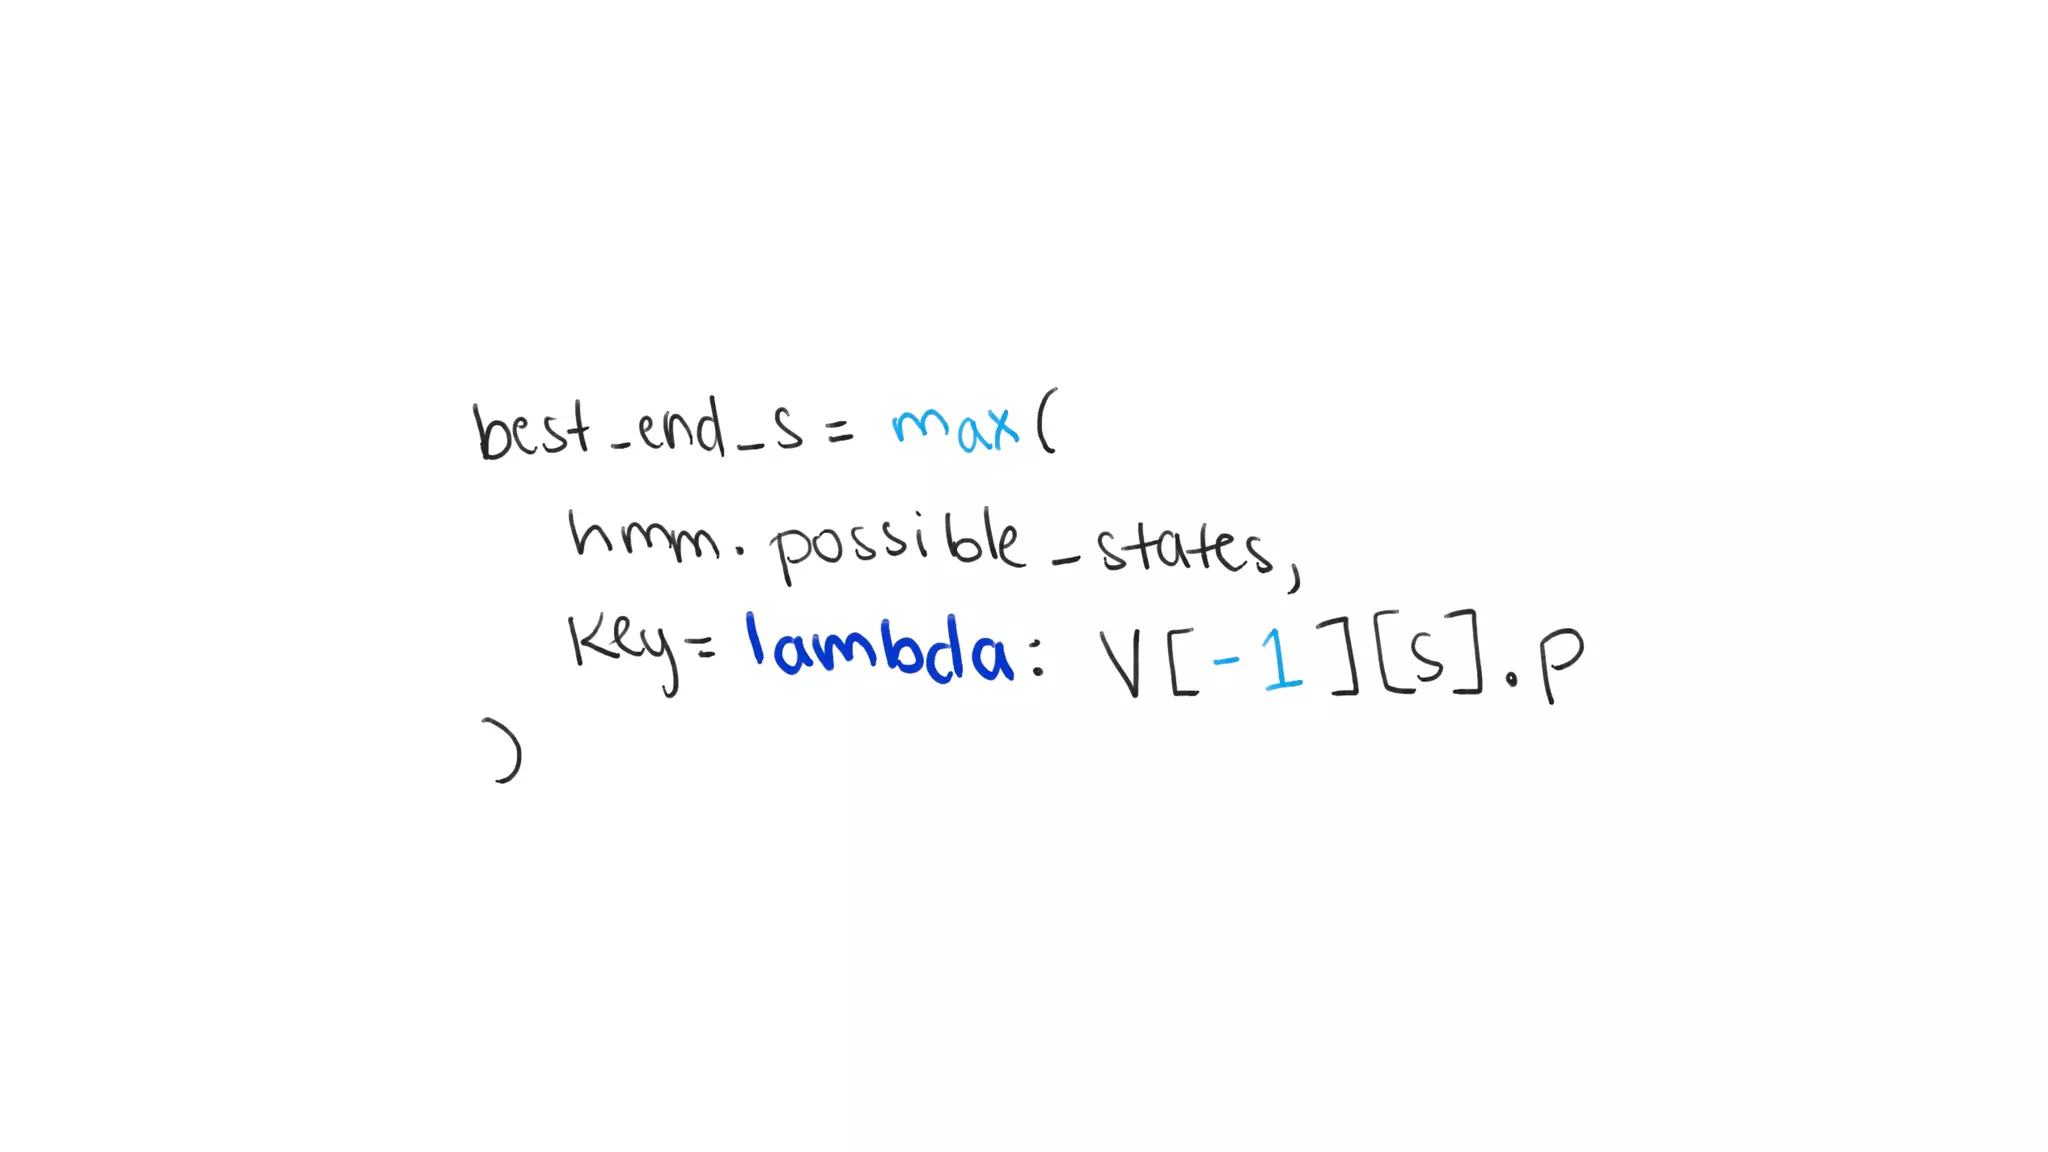 best_end_s = max(
hmm.possible_states,
key=lambda: V[-1][s].p
)